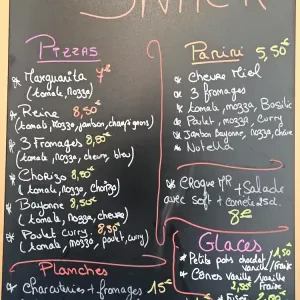 SNACK
Pizzas
* Marguarita 7€
(tomate, mozza)
* Reine 8,50€
(tomate, mozza, jambon, champignons)
* 3 Fromages 8,50€
(tomate, mozza, chevre, bleu)
* Chorizo 8,50€
(tomate, mozza, chorizo)
* Bayonne 8,50€
(tomate, mozza, chevre)
* Poulet Curry 8,50€
(tomate, mozza, poulet, curry)
Planches
* Charcuteries + fromages 15€
Panini 5,50€
* Chevre Miel
* 3 fromages
* tomate, mozza, Basilic
* Poulet, mozza, Curry
* Jambon Bayonne, mozza, chevre
* Nutella
* CROQUE Mr + Salade
avec soft + cornet 25cl
8€
Glaces
* Petits pots chocolat 1,50€
vanille/fraise
* Cônes vanille
vanille/fraise
2,50€